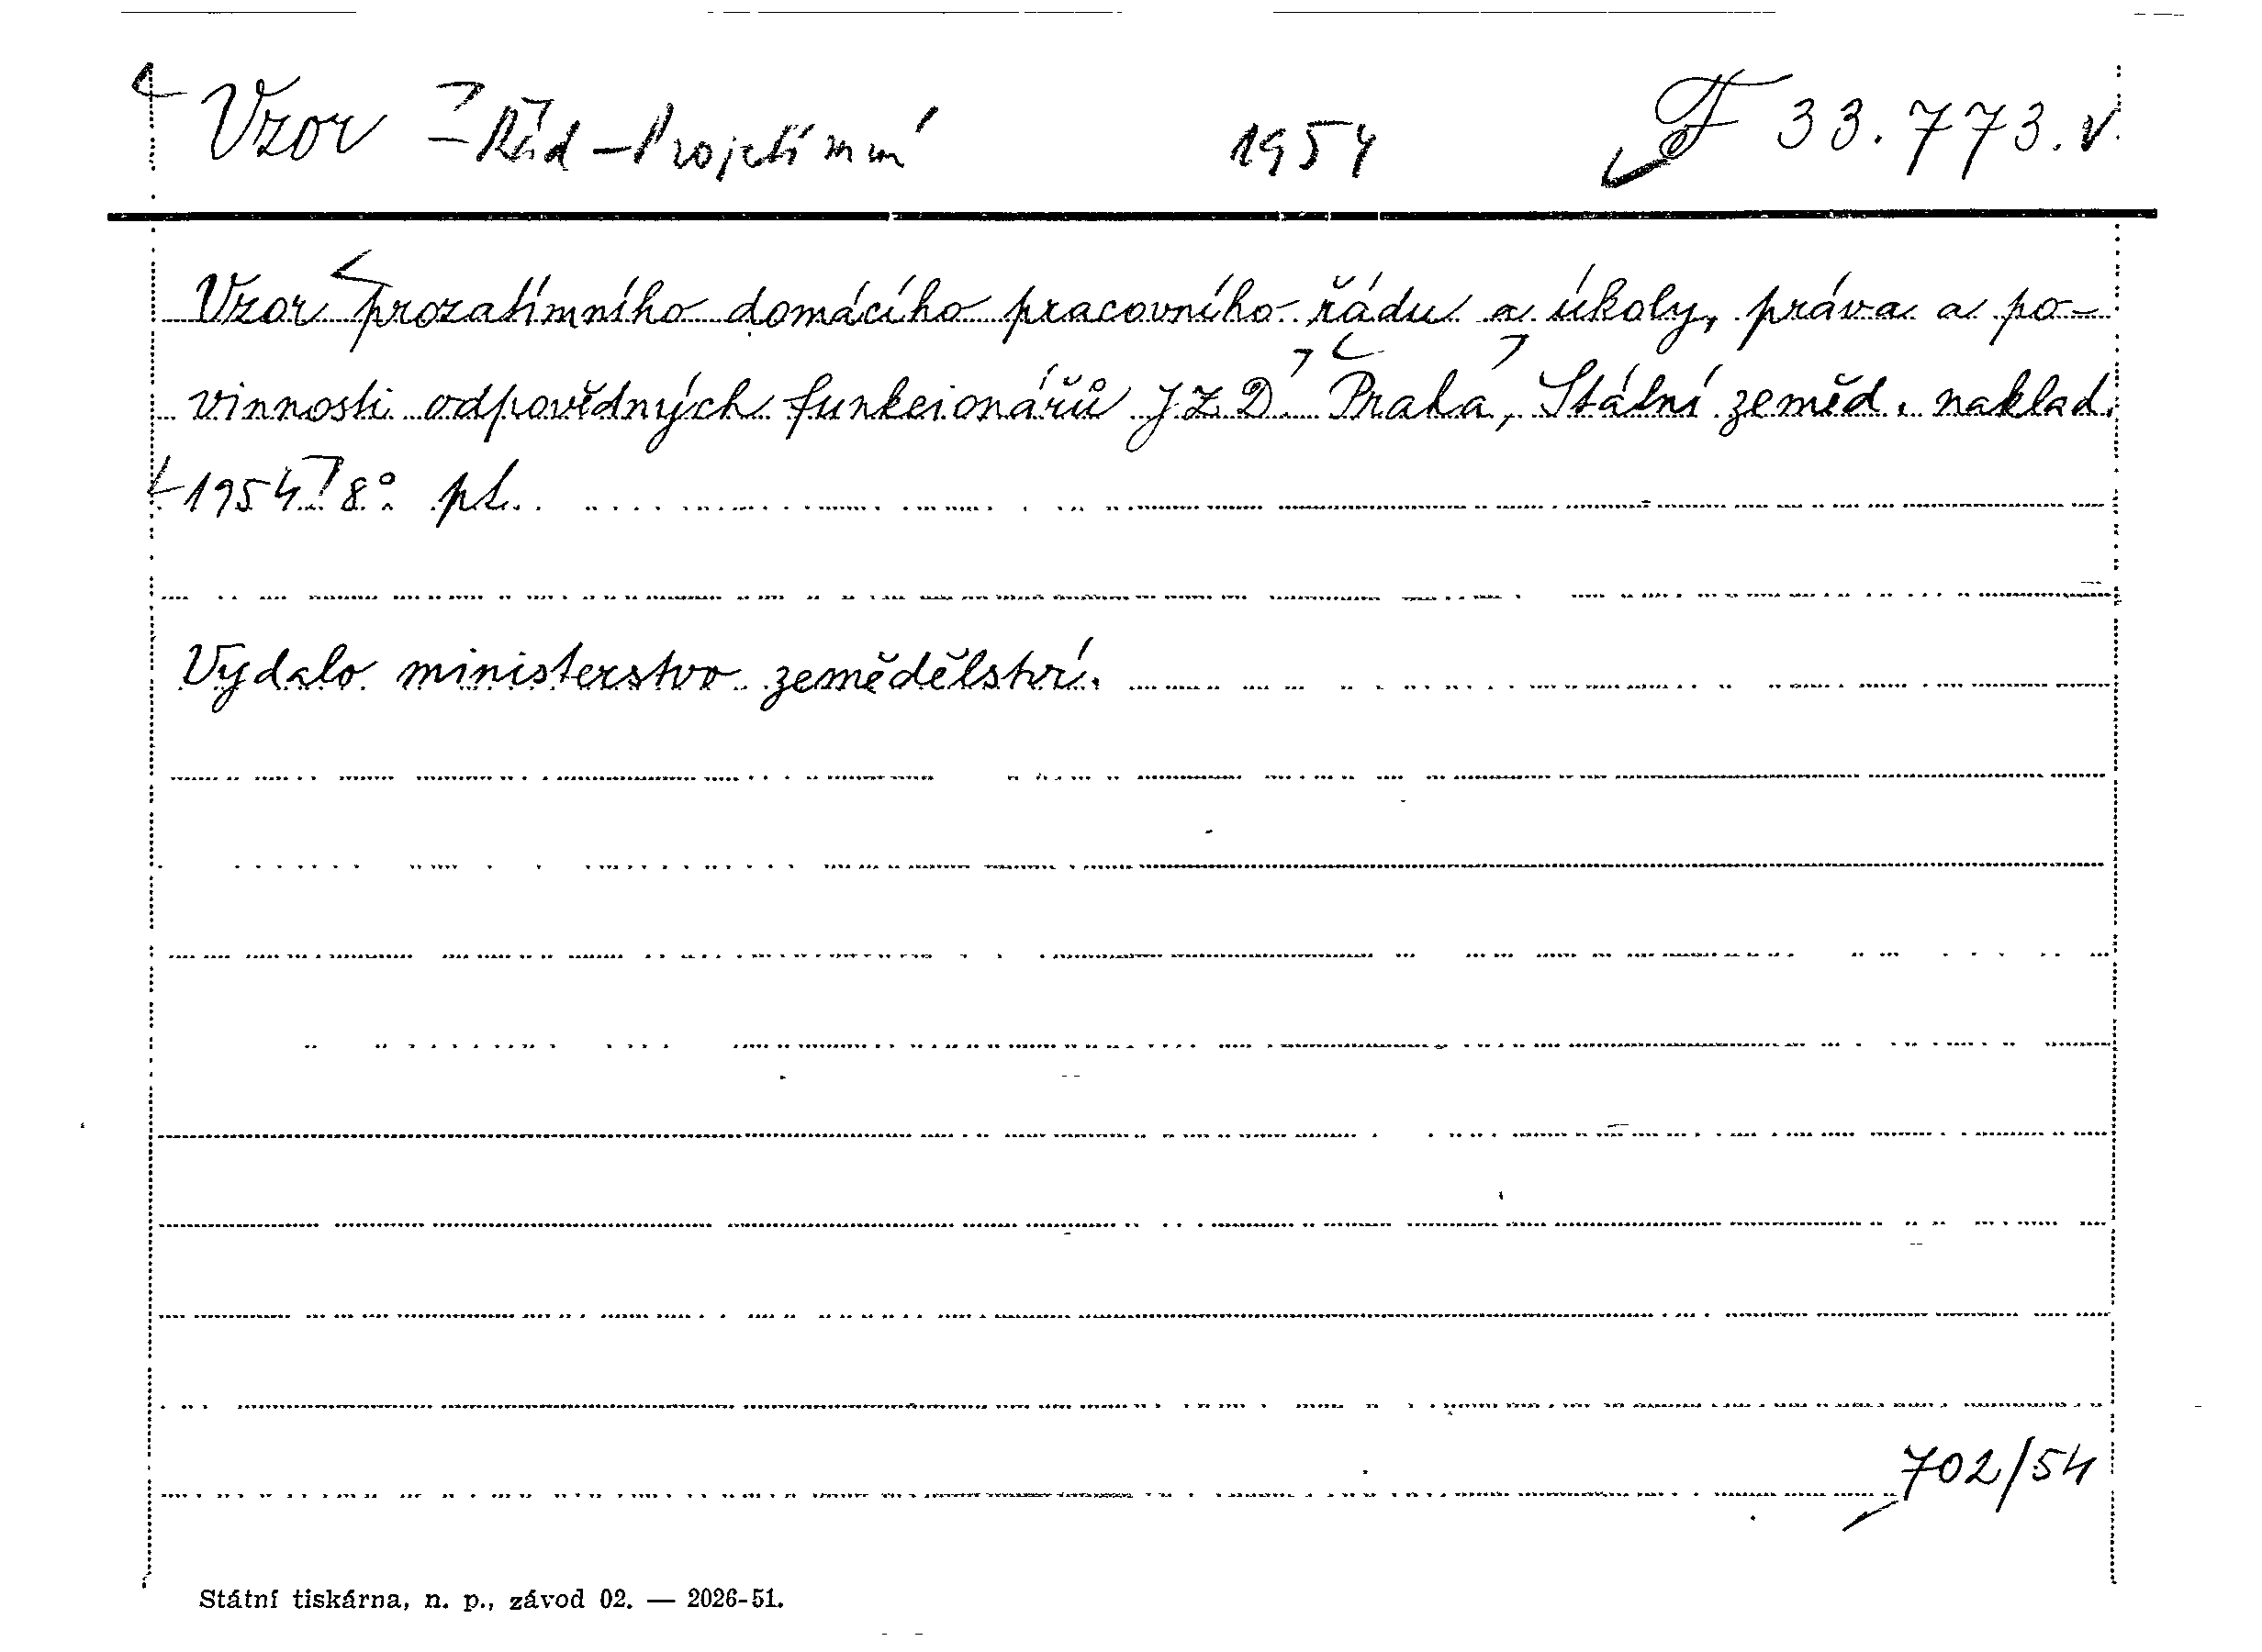 Vzor - Řád - Prozatímní 1954 F 33.773.v.
Vzor prozatímního domácího pracovního řádu a úkoly, práva a po-
vinnosti odpovědných funkcionářů JZD. Praha, Státní zeměd. naklad.
1954. 8° pt.
Vydalo ministerstvo zemědělství.
702/54
Státní tiskárna, n. p., závod 02. — 2026-51.